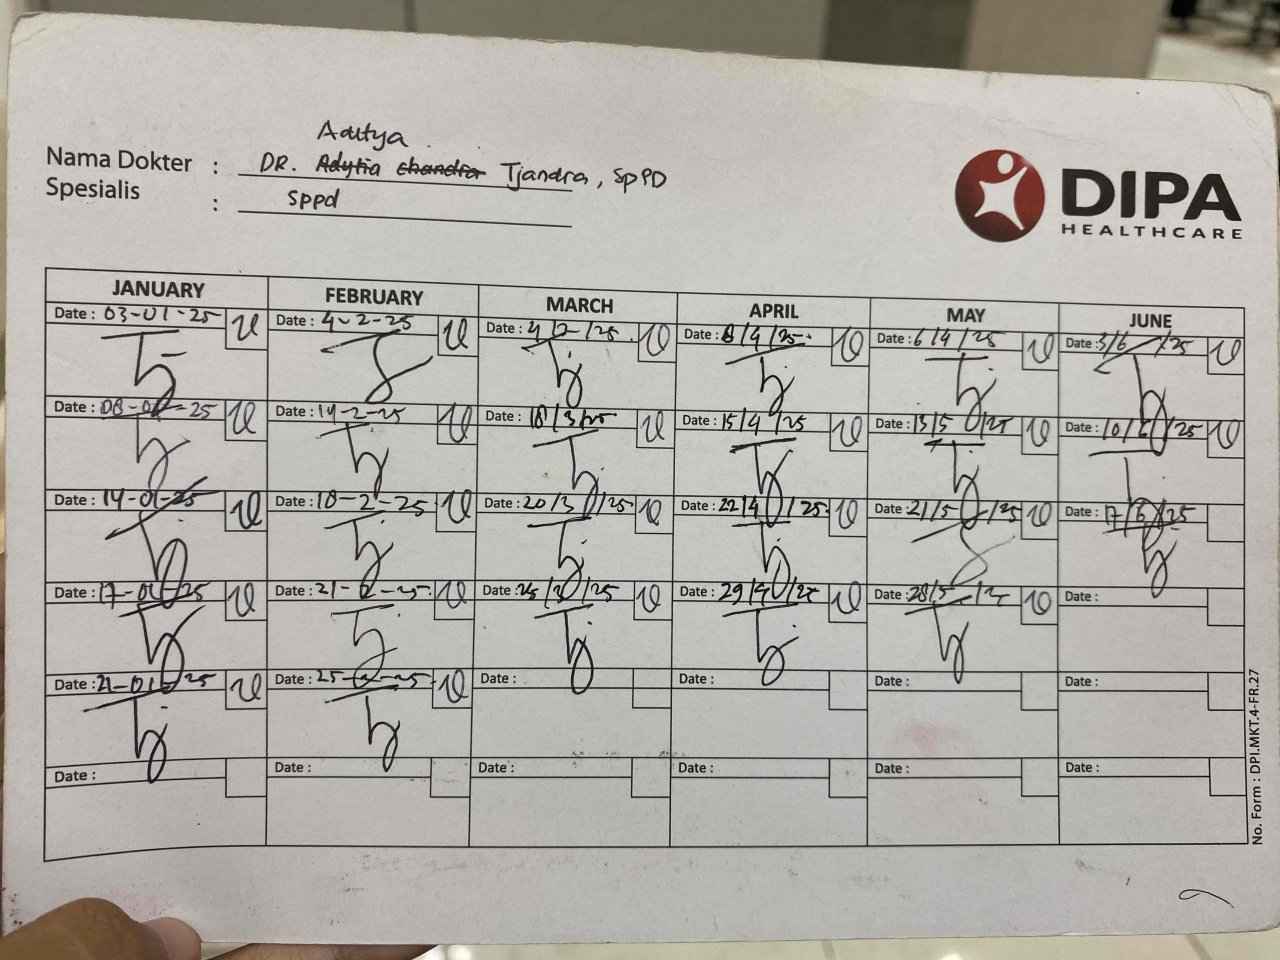 Aditya
Nama Dokter : DR. Adytia chandra Tjandra, SpPD
Spesialis : Sppd
DIPA
HEALTHCARE
JANUARY FEBRUARY MARCH APRIL MAY JUNE
Date : 03-01-25 Date : 4-2-25 Date : 4/ /25 Date : 8/4/25 Date : 6/4/25 Date : 3/6/25
Date : 08-01-25 Date : 14-2-25 Date : 18/3/25 Date : 15/4/25 Date : 13/5/25 Date : 10/6/25
Date : 14-01-25 Date : 18-2-25 Date : 20/3/25 Date : 22/4/25 Date : 21/5/25 Date : 17/6/25
Date : 17-01-25 Date : 21-2-25 Date : 25/3/25 Date : 29/4/25 Date : 28/5/25 Date :
Date : 21-01-25 Date : 25-2-25 Date : Date : Date : Date :
Date : Date : Date : Date : Date : Date :
No. Form : DPI.MKT.4-FR.27